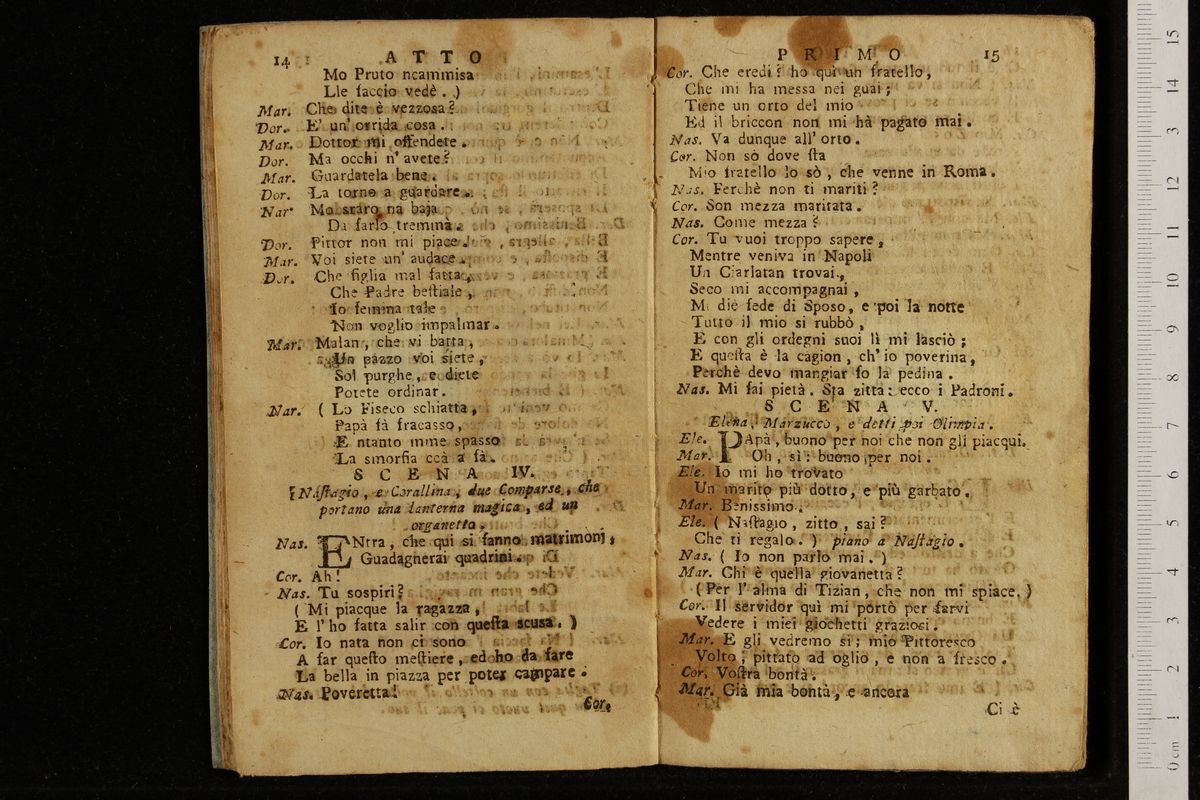 14 ATTO
Mo Pruto ncammisa
Lle faccio vedè. )
Mar. Che dite è vezzosa?
Dor. E' un' orrida cosa.
Mar. Dottor mi offendete.
Dor. Ma occhi n' avete?
Mar. Guardatela bene.
Dor. La torno a guardare.
Nar. Mo staro na baja
Da farlo tremmà.
Dor. Pittor non mi piace.
Mar. Voi siete un' audace.
Dor. Che figlia mal fatta,
Che Padre beſtiale,
Io femma tale
Non voglio impalmar.
Mar. Malan, che vi batta,
Un pazzo voi siete,
Sol purghe, e diete
Potete ordinar.
Nar. ( Lo Fiseco schiatta,
Papà fà fracasso,
E ntanto mme spasso
La smorfia ccà a fà.
SCENA IV.
Naſtagio, e Corallina, due Comparse, che
portano una lanterna magica, ed un
organetto.
Nas. ENtra, che quì si fanno matrimonj,
Guadagnerai quadrini.
Cor. Ah!
Nas. Tu sospiri?
( Mi piacque la ragazza,
E l' ho fatta salir con queſta scusa. )
Cor. Io nata non ci sono
A far queſto meſtiere, ed ho da fare
La bella in piazza per poter campare.
Nas. Poveretta!
Cor.
PRIMO 15
Cor. Che credi? ho quì un fratello,
Che mi ha messa nei guai;
Tiene un orto del mio
Ed il briccon non mi hà pagato mai.
Nas. Va dunque all' orto.
Cor. Non sò dove ſta
Mio fratello lo sò, che venne in Roma.
Nas. Perchè non ti mariti?
Cor. Son mezza maritata.
Nas. Come mezza?
Cor. Tu vuoi troppo sapere,
Mentre veniva in Napoli
Un Ciarlatan trovai,
Seco mi accompagnai,
Mi diè fede di Sposo, e poi la notte
Tutto il mio si rubbò,
E con gli ordegni suoi lì mi lasciò;
E queſta è la cagion, ch' io poverina,
Perchè devo mangiar fo la pedina.
Nas. Mi fai pietà. Sta zitta: ecco i Padroni.
SCENA V.
Elena, Marzucco, e detti poi Olimpia.
Ele. PApà, buono per noi che non gli piacqui.
Mar. Oh, sì: buono per noi.
Ele. Io mi ho trovato
Un marito più dotto, e più garbato.
Mar. Benissimo.
Ele. ( Naſtagio, zitto, sai?
Che ti regalo. ) piano a Naſtagio.
Nas. ( Io non parlo mai. )
Mar. Chi è quella giovanetta?
( Per l' alma di Tizian, che non mi spiace. )
Cor. Il servidor quì mi portò per farvi
Vedere i miei giochetti graziosi.
Mar. E gli vedremo sì; mio Pittoresco
Volto, pittato ad oglio, e non a fresco.
Cor. Voſtra bontà.
Mar. Già mia bontà, e ancora
Ci è